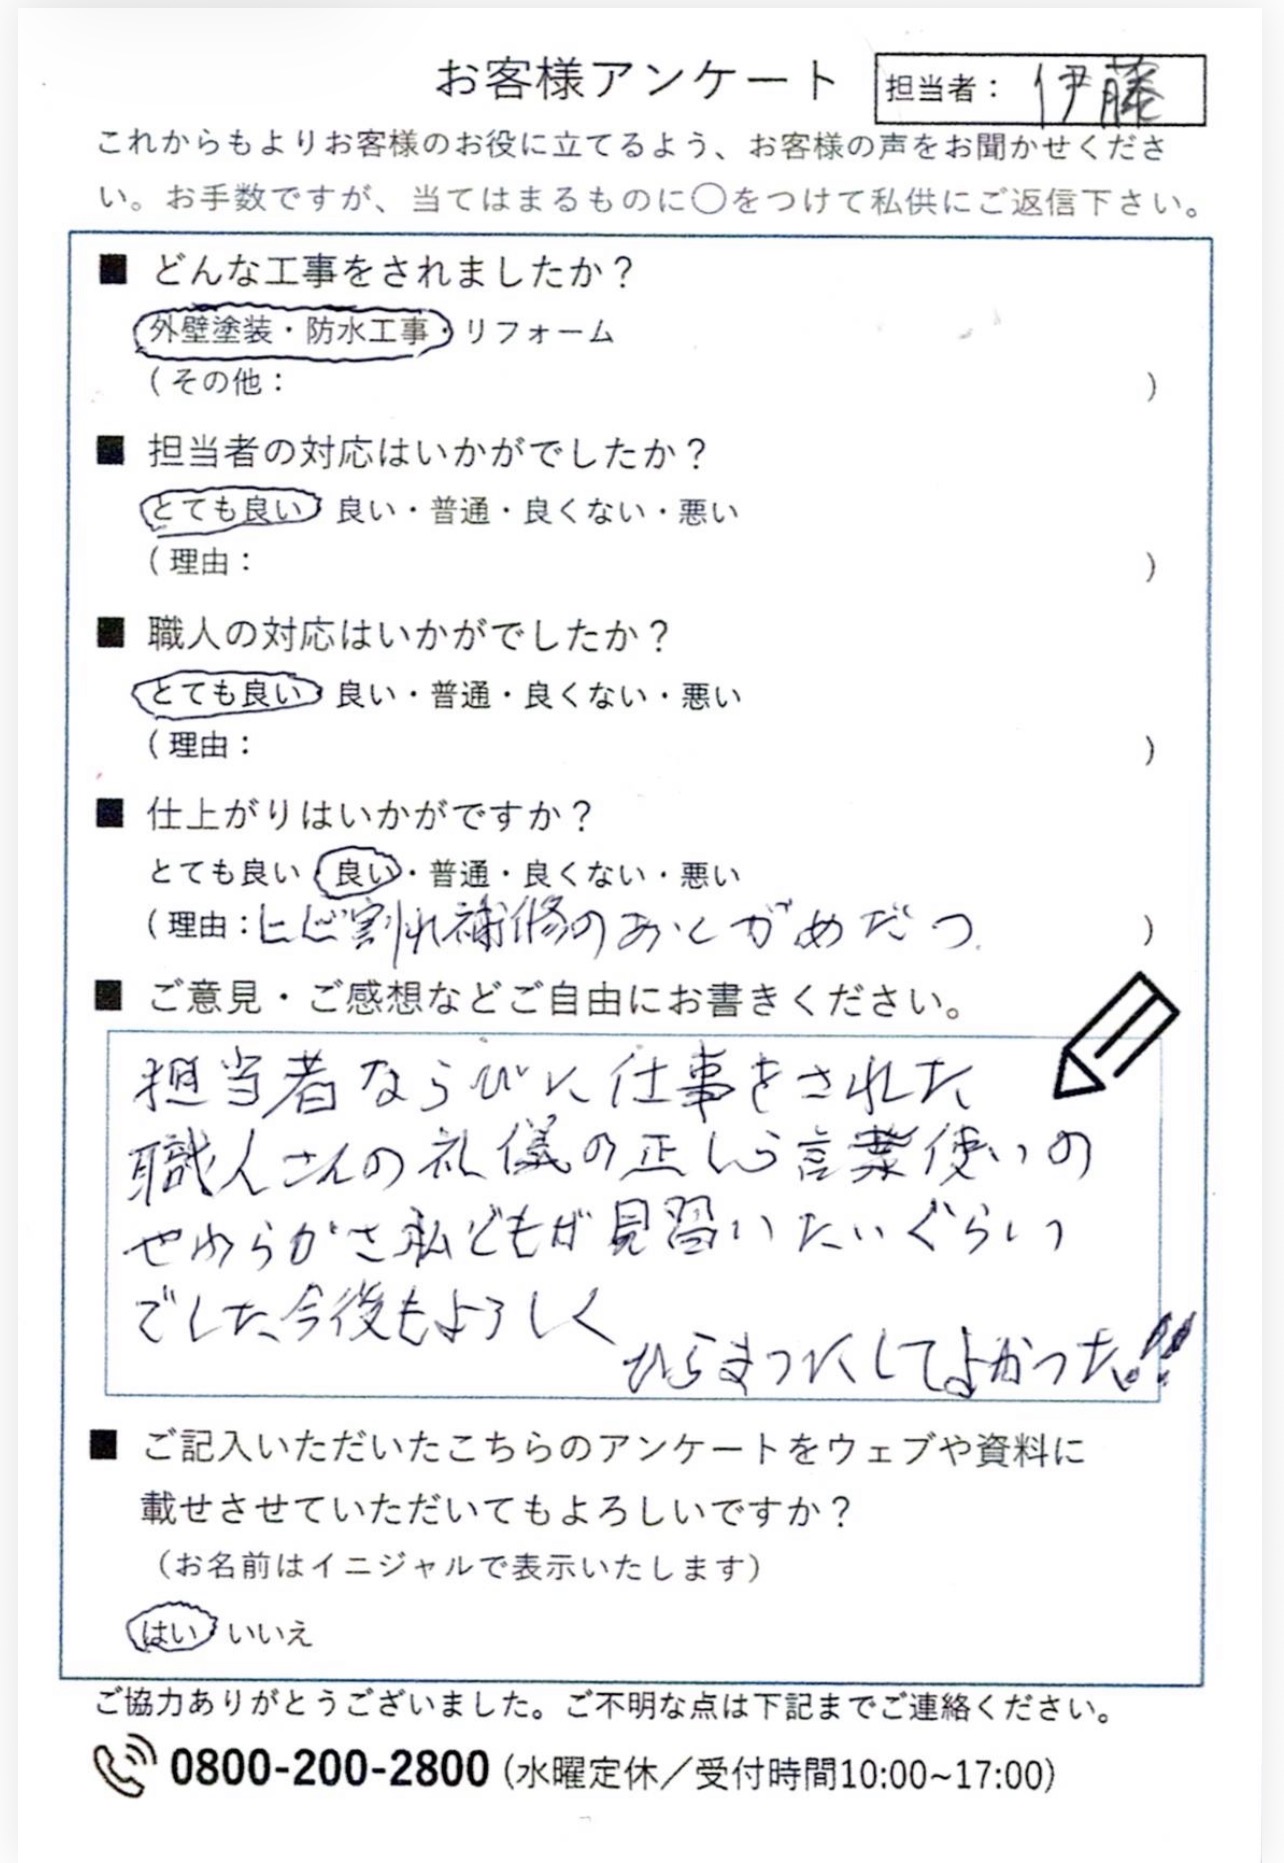 お客様アンケート
担当者： 伊藤
これからもよりお客様のお役に立てるよう、お客様の声をお聞かせくださ
い。お手数ですが、当てはまるものに〇をつけて私供にご返信下さい。
■ どんな工事をされましたか？
外壁塗装・防水工事・リフォーム
（その他： ）
■ 担当者の対応はいかがでしたか？
とても良い 良い・普通・良くない・悪い
（理由： ）
■ 職人の対応はいかがでしたか？
とても良い 良い・普通・良くない・悪い
（理由： ）
■ 仕上がりはいかがですか？
とても良い・良い・普通・良くない・悪い
（理由：ヒビ割れ補修のあとがめだつ ）
■ ご意見・ご感想などご自由にお書きください。
担当者ならびに仕事をされた
職人さんの礼儀の正しら言葉使いの
やわらかさ私どもが見習いたいぐらい
でした、今後もよろしく
ひらまつにしてよかった!!
■ ご記入いただいたこちらのアンケートをウェブや資料に
載せさせていただいてもよろしいですか？
（お名前はイニジャルで表示いたします）
はい いいえ
ご協力ありがとうございました。ご不明な点は下記までご連絡ください。
0800-200-2800 (水曜定休／受付時間10:00~17:00)